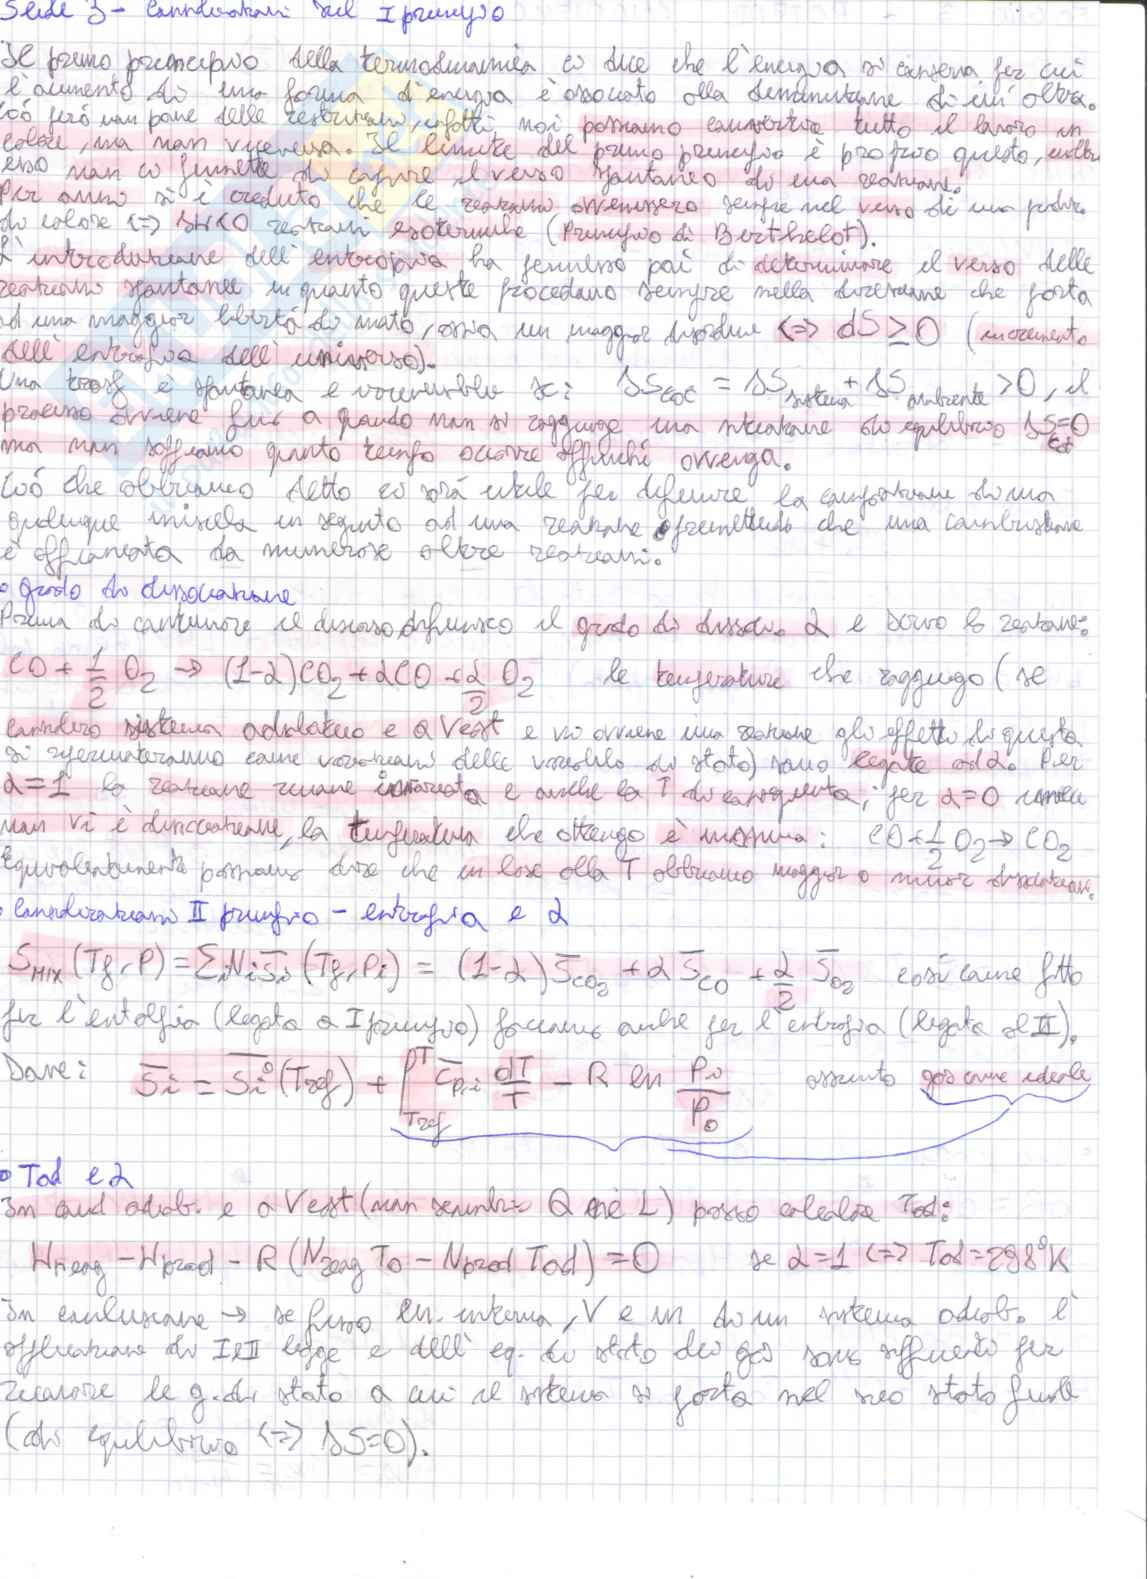 Slide 3 - Considerazioni sul I principio
Il primo principio della termodinamica ci dice che l'energia si conserva per cui
l'aumento di una forma d'energia è associato alla diminuzione di un'altra.
Ciò però non pone delle restrizioni, infatti noi possiamo convertire tutto il lavoro in
calore, ma non viceversa. Il limite del primo principio è proprio questo, infatti
esso non ci permette di capire il verso spontaneo di una reazione.
Per anni si è creduto che le reazioni avvenissero sempre nel verso di una produz.
di calore <=> ΔH<0 reazioni esotermiche (Principio di Berthelot).
L'introduzione dell'entropia ha permesso poi di determinare il verso delle
reazioni spontanee in quanto queste procedono sempre nella direzione che porta
ad una maggior libertà di moto, ossia un maggior disordine <=> dS ≥ 0 (incremento
dell'entropia dell'universo).
Una trasf è spontanea e irreversibile se: ΔS = ΔS sistema + ΔS ambiente > 0, il
processo avviene fino a quando non si raggiunge una situazione di equilibrio ΔS=0
ma non sappiamo quanto tempo occorre affinché avvenga.
Ciò che abbiamo detto ci sarà utile per definire la composizione di una
qualunque miscela in seguito ad una reazione premettendo che una combustione
è affiancata da numerose altre reazioni.
• grado di dissociazione
Prima di continuare il discorso definisco il grado di dissoc. α e scrivo la reazione:
CO + 1/2 O2 → (1-α)CO2 + αCO + α/2 O2 le temperature che raggiungo (se
considero sistema adiabatico e a Vcost e vi avviene una reazione gli effetti di questa
si ripercuoteranno come variazioni delle variabili di stato) sono legate ad α. Per
α=1 la reazione rimane invariata e anche la T di conseguenza; per α=0
non vi è dissociazione, la temperatura che ottengo è massima: CO + 1/2 O2 → CO2
Equivalentemente possiamo dire che in base alla T abbiamo maggior o minor dissociazion.
• Considerazioni II principio - entropia e α
S_MIX (Tf, P) = Σi Ni S̄i (Tf, Pi) = (1-α) S̄CO2 + α S̄CO + α/2 S̄O2 così come fatto
per l'entalpia (legata a I principio) facciamo anche per l'entropia (legata al II).
Dove: S̄i = S̄i° (Tref) + ∫Tref^T C̄p,i dT/T - R ln Pi/P0 assunto gas come ideale
• Tad e α
In cond adiab. e a Vcost (non scambio Q né L) posso calcolare Tad:
Hreag - Hprod - R (Nreag T0 - Nprod Tad) = 0 se α=1 <=> Tad = 298°K
In conclusione → se fisso en. interna, V e m di un sistema adiab. l'
applicazione di I e II legge e dell'eq. di stato dei gas sono sufficienti per
ricavare le g. di stato a cui il sistema si porta nel suo stato finale
(di equilibrio <=> ΔS=0).